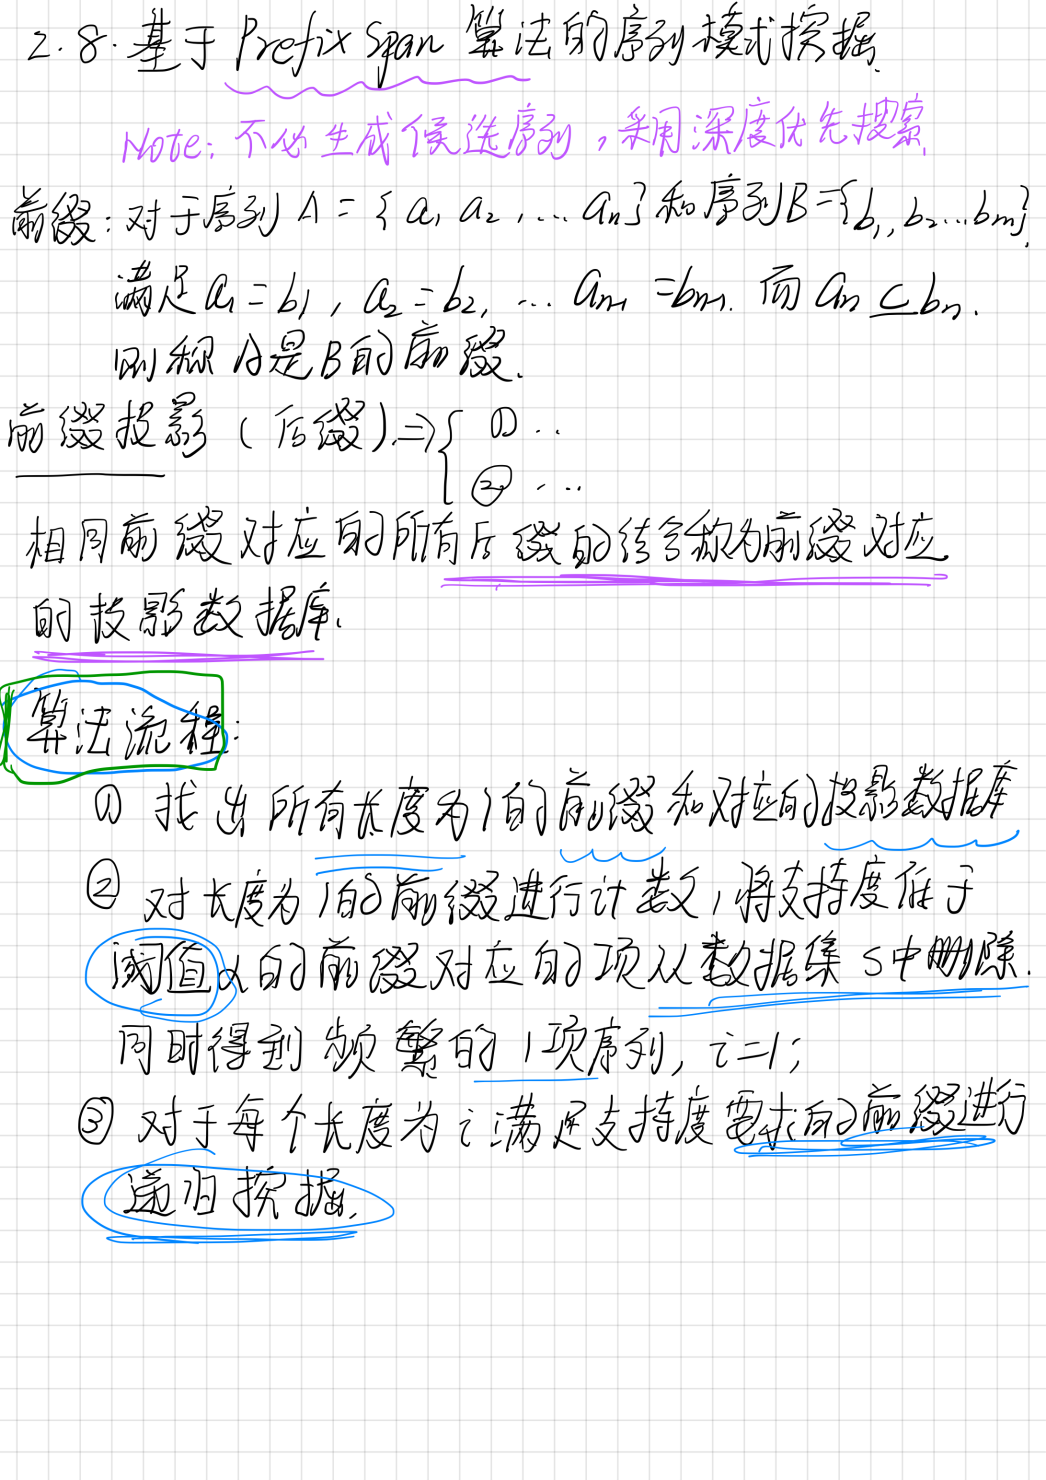 2.8. 基于 Prefix Span 算法的序列模式挖掘.
Note: 不必生成候选序列,采用深度优先搜索.
前缀: 对于序列 A = {a₁ a₂, ... aₙ} 和序列B={b₁, b₂...bm}.
满足 a₁=b₁, a₂=b₂, ... aₙ₋₁=bₙ₋₁. 而 aₙ⊆bₙ.
则称A是B的前缀.
前缀投影 (后缀).⇒{ ① ..
② ...
相同前缀对应的所有后缀的结合称为前缀对应
的投影数据库.
算法流程:
① 找出所有长度为1的前缀和对应的投影数据库
② 对长度为1的前缀进行计数,将支持度低于
阈值α的前缀对应的项从数据集S中删除.
同时得到频繁的1项序列, i=1;
③ 对于每个长度为i满足支持度要求的前缀进行
递归挖掘.